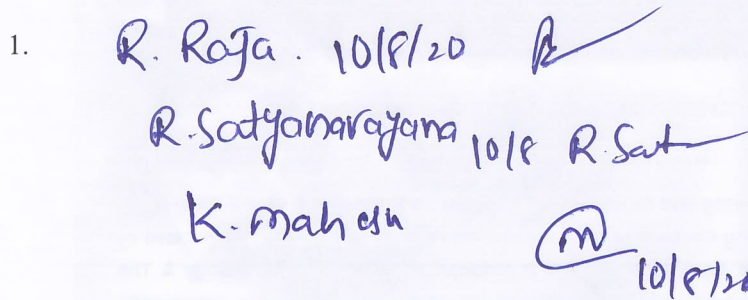 1. R. Raja. 10/8/20 R
R. Satyanarayana 10/8 R. Sat
K. Mahesh M
10/8/20